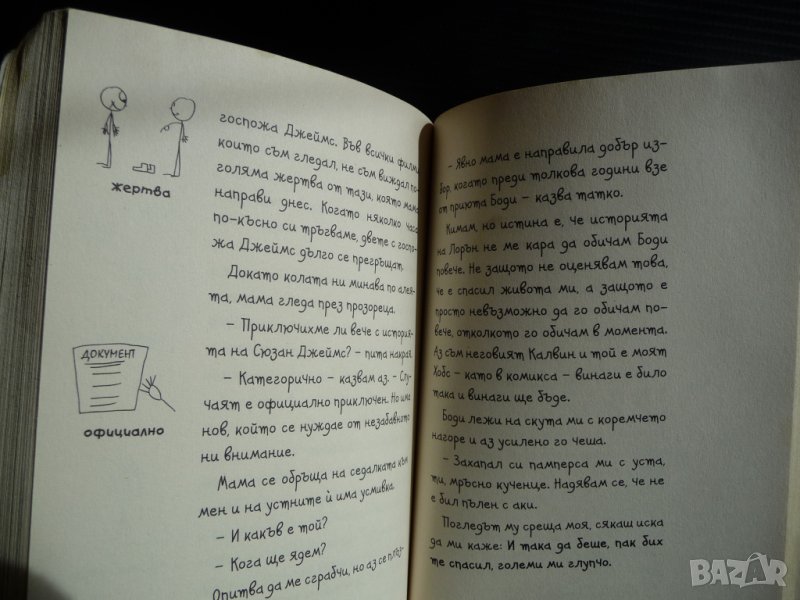 жертва
ДОКУМЕНТ
официално
госпожа Джеймс. Във всички филми,
които съм гледал, не съм виждал по-
голяма жертва от тази, която мама
направи днес. Когато няколко часа
по-късно си тръгваме, двете с госпо-
жа Джеймс дълго се прегръщат.
Докато колата ни минава по алея-
та, мама гледа през прозореца.
– Приключихме ли вече с история-
та на Сюзан Джеймс? – пита накрая.
– Категорично – казвам аз. – Слу-
чаят е официално приключен. Но има
нов, който се нуждае от незабавното
ни внимание.
Мама се обръща на седалката към
мен и на устните ѝ има усмивка.
– И какъв е той?
– Кога ще ядем?
Опитва да ме сграбчи, но аз се плъз-
– Явно мама е направила добър из-
бор, когато преди толкова години взе
от приюта Боди – казва татко.
Кимам, но истина е, че историята
на Лорън не ме кара да обичам Боди
повече. Не защото не оценявам това,
че е спасил живота ми, а защото е
просто невъзможно да го обичам по-
вече, отколкото го обичам в момента.
Аз съм неговият Калвин и той е моят
Хобс – като в комикса – винаги е било
така и винаги ще бъде.
Боди лежи на скута ми с коремчето
нагоре и аз усилено го чеша.
– Захапал си памперса ми с уста,
ти, мръсно кученце. Надявам се, че не
е бил пълен с аки.
Погледът му среща моя, сякаш иска
да ми каже: И така да беше, пак бих
те спасил, големи ми глупчо.
BAZAR